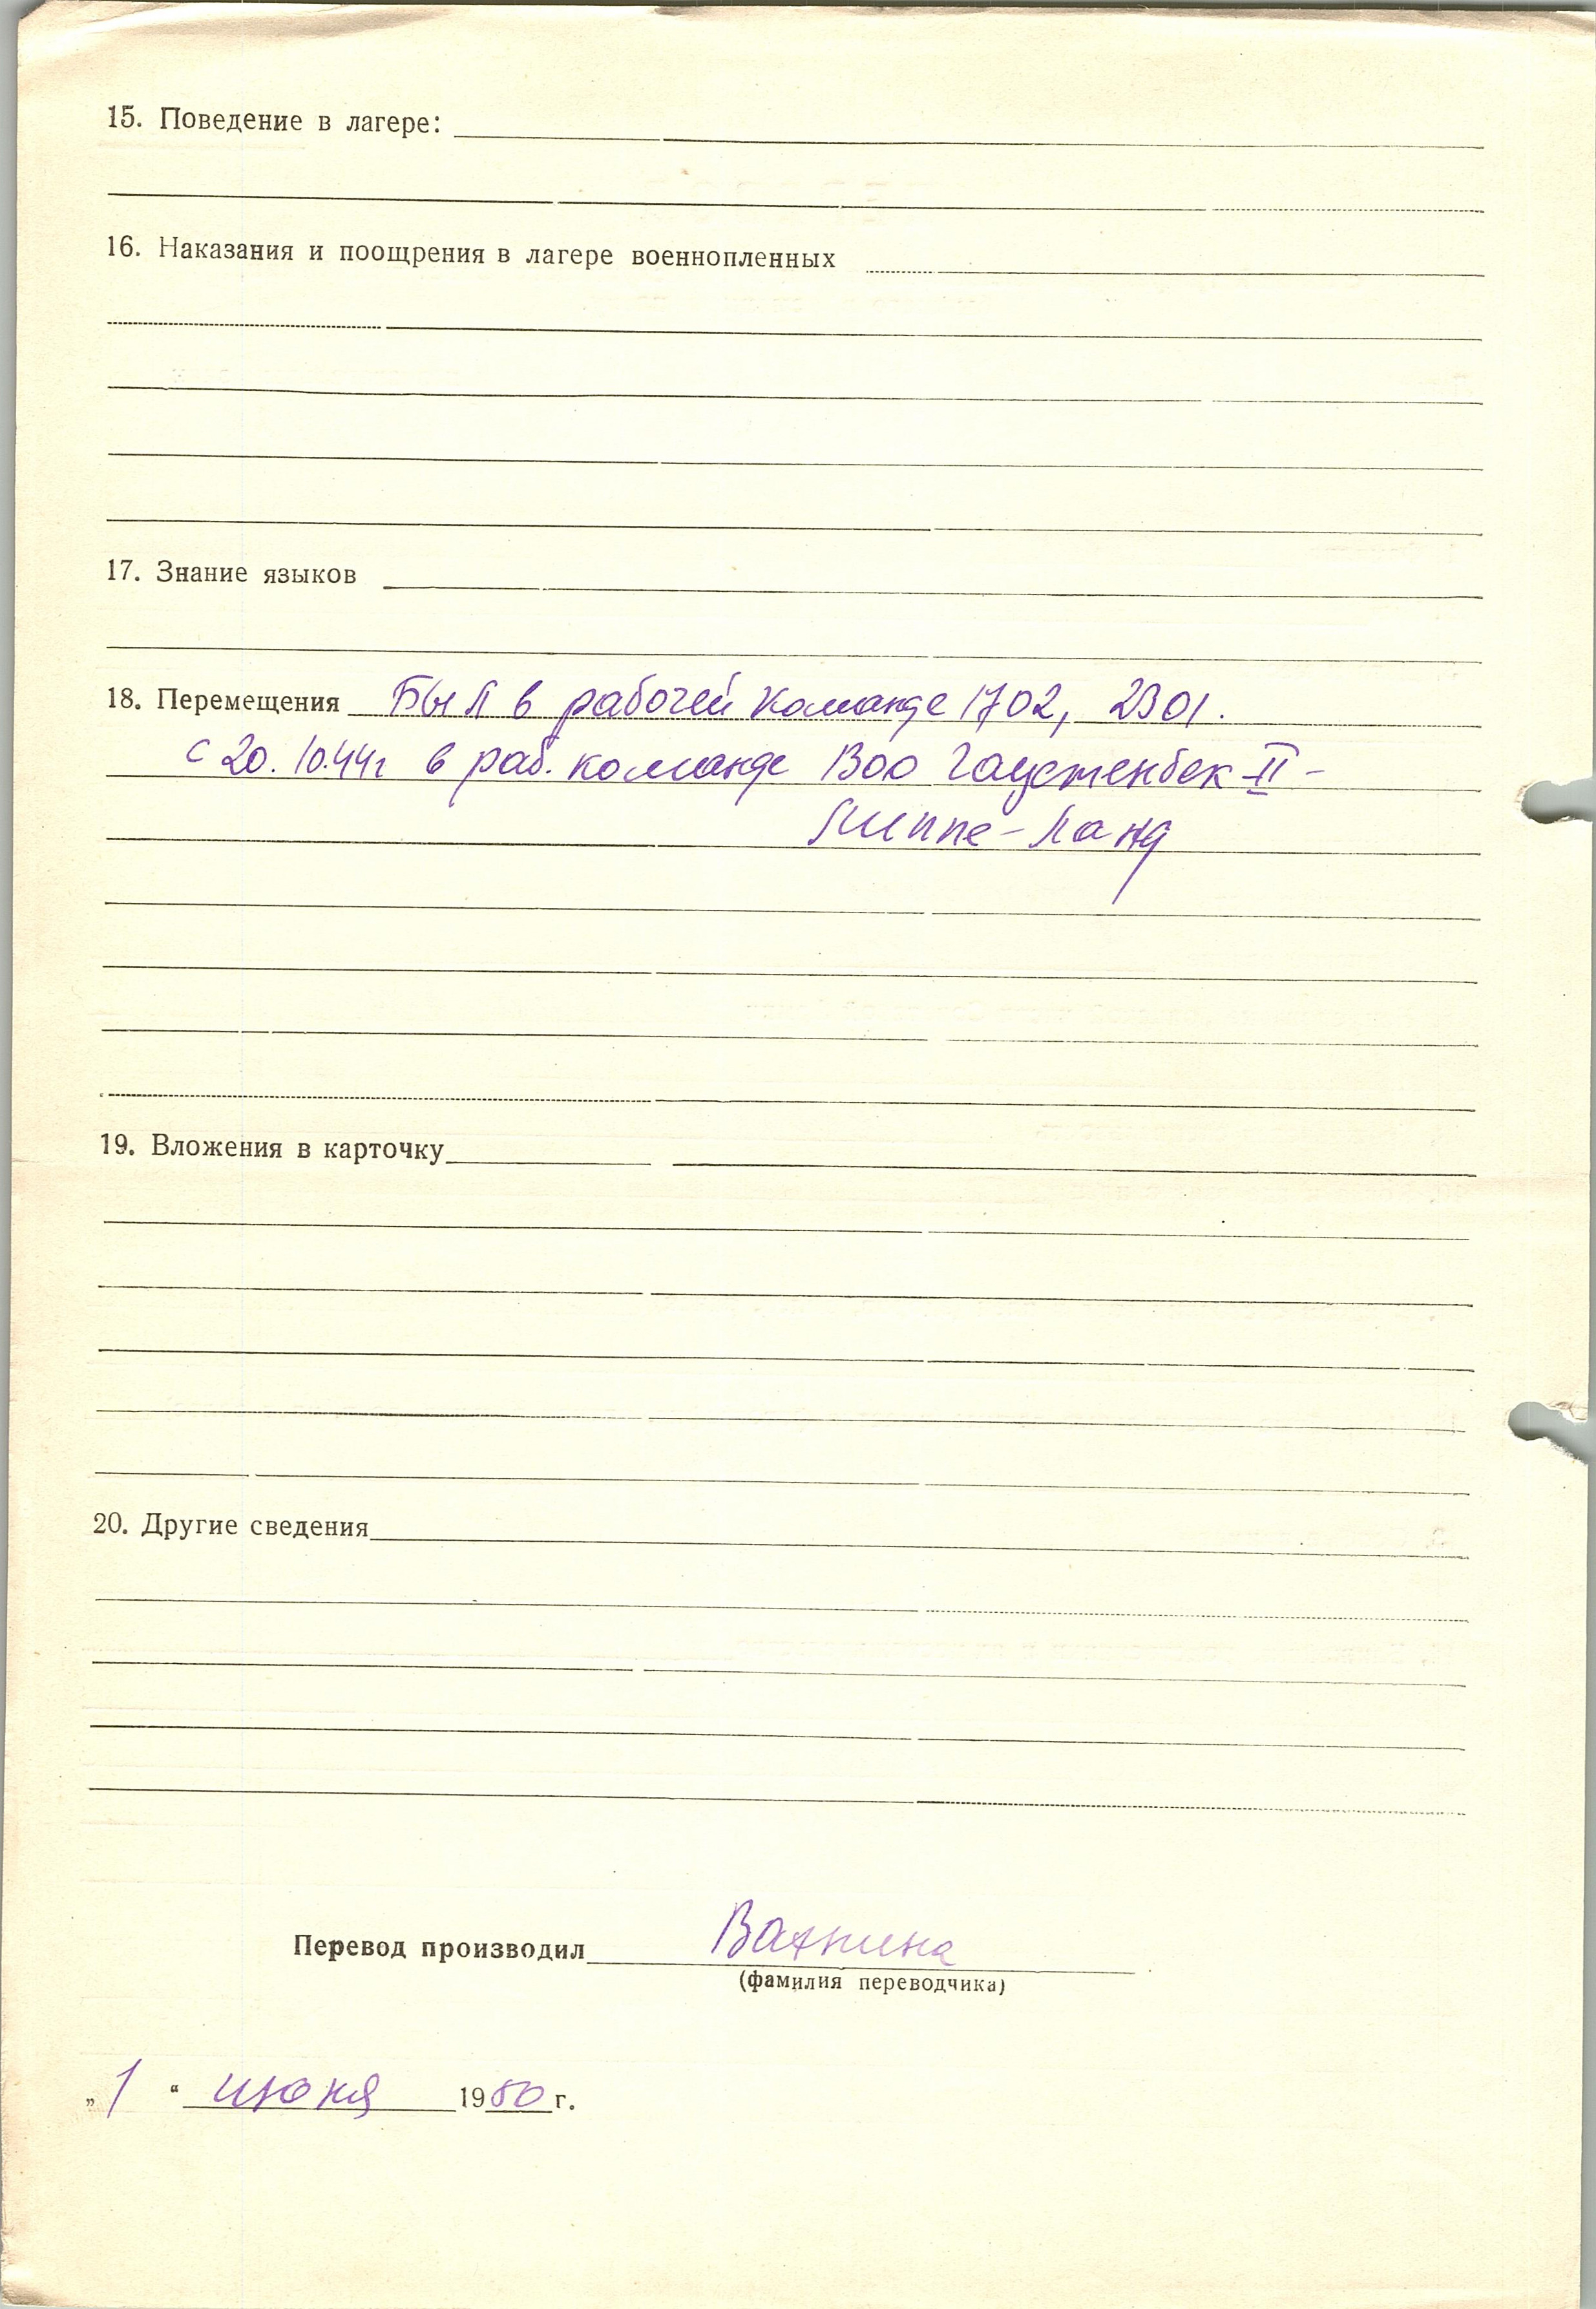 15. Поведение в лагере:
16. Наказания и поощрения в лагере военнопленных
17. Знание языков
18. Перемещения Был в рабочей команде 1702, 2301.
с 20.10.44г в раб. команде 1300 Гаустенбек-II-
Липпе-Ланд
19. Вложения в карточку
20. Другие сведения
Перевод производил Вахнина
(фамилия переводчика)
„1“ июня 1950 г.